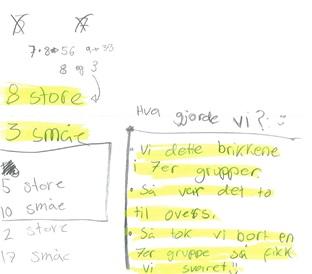 7·8=56
8 og 3
8 store
3 småe
5 store
10 småe
2 store
17 småe
Hva gjorde vi?
Vi delte brikkene
i 7er grupper.
Så var det to
til overs.
Så tok vi bort en
7er gruppe så fikk
vi svaret!!